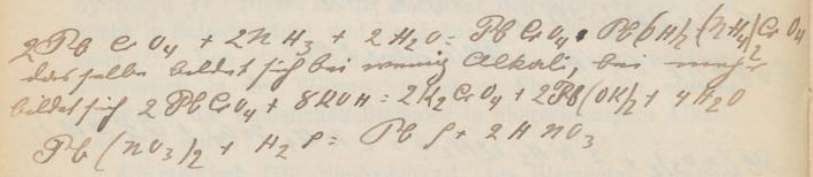 2 Pb CrO4 + 2NH3 + 2H2O = PbCrO4 • Pb(OH)2 + (NH4)2CrO4
dasselbe bildet sich bei wenig Alkali, bei mehr
bildet sich 2 PbCrO4 + 8KOH = 2K2CrO4 + 2Pb(OK)2 + 4H2O
Pb(NO3)2 + H2S = PbS + 2HNO3